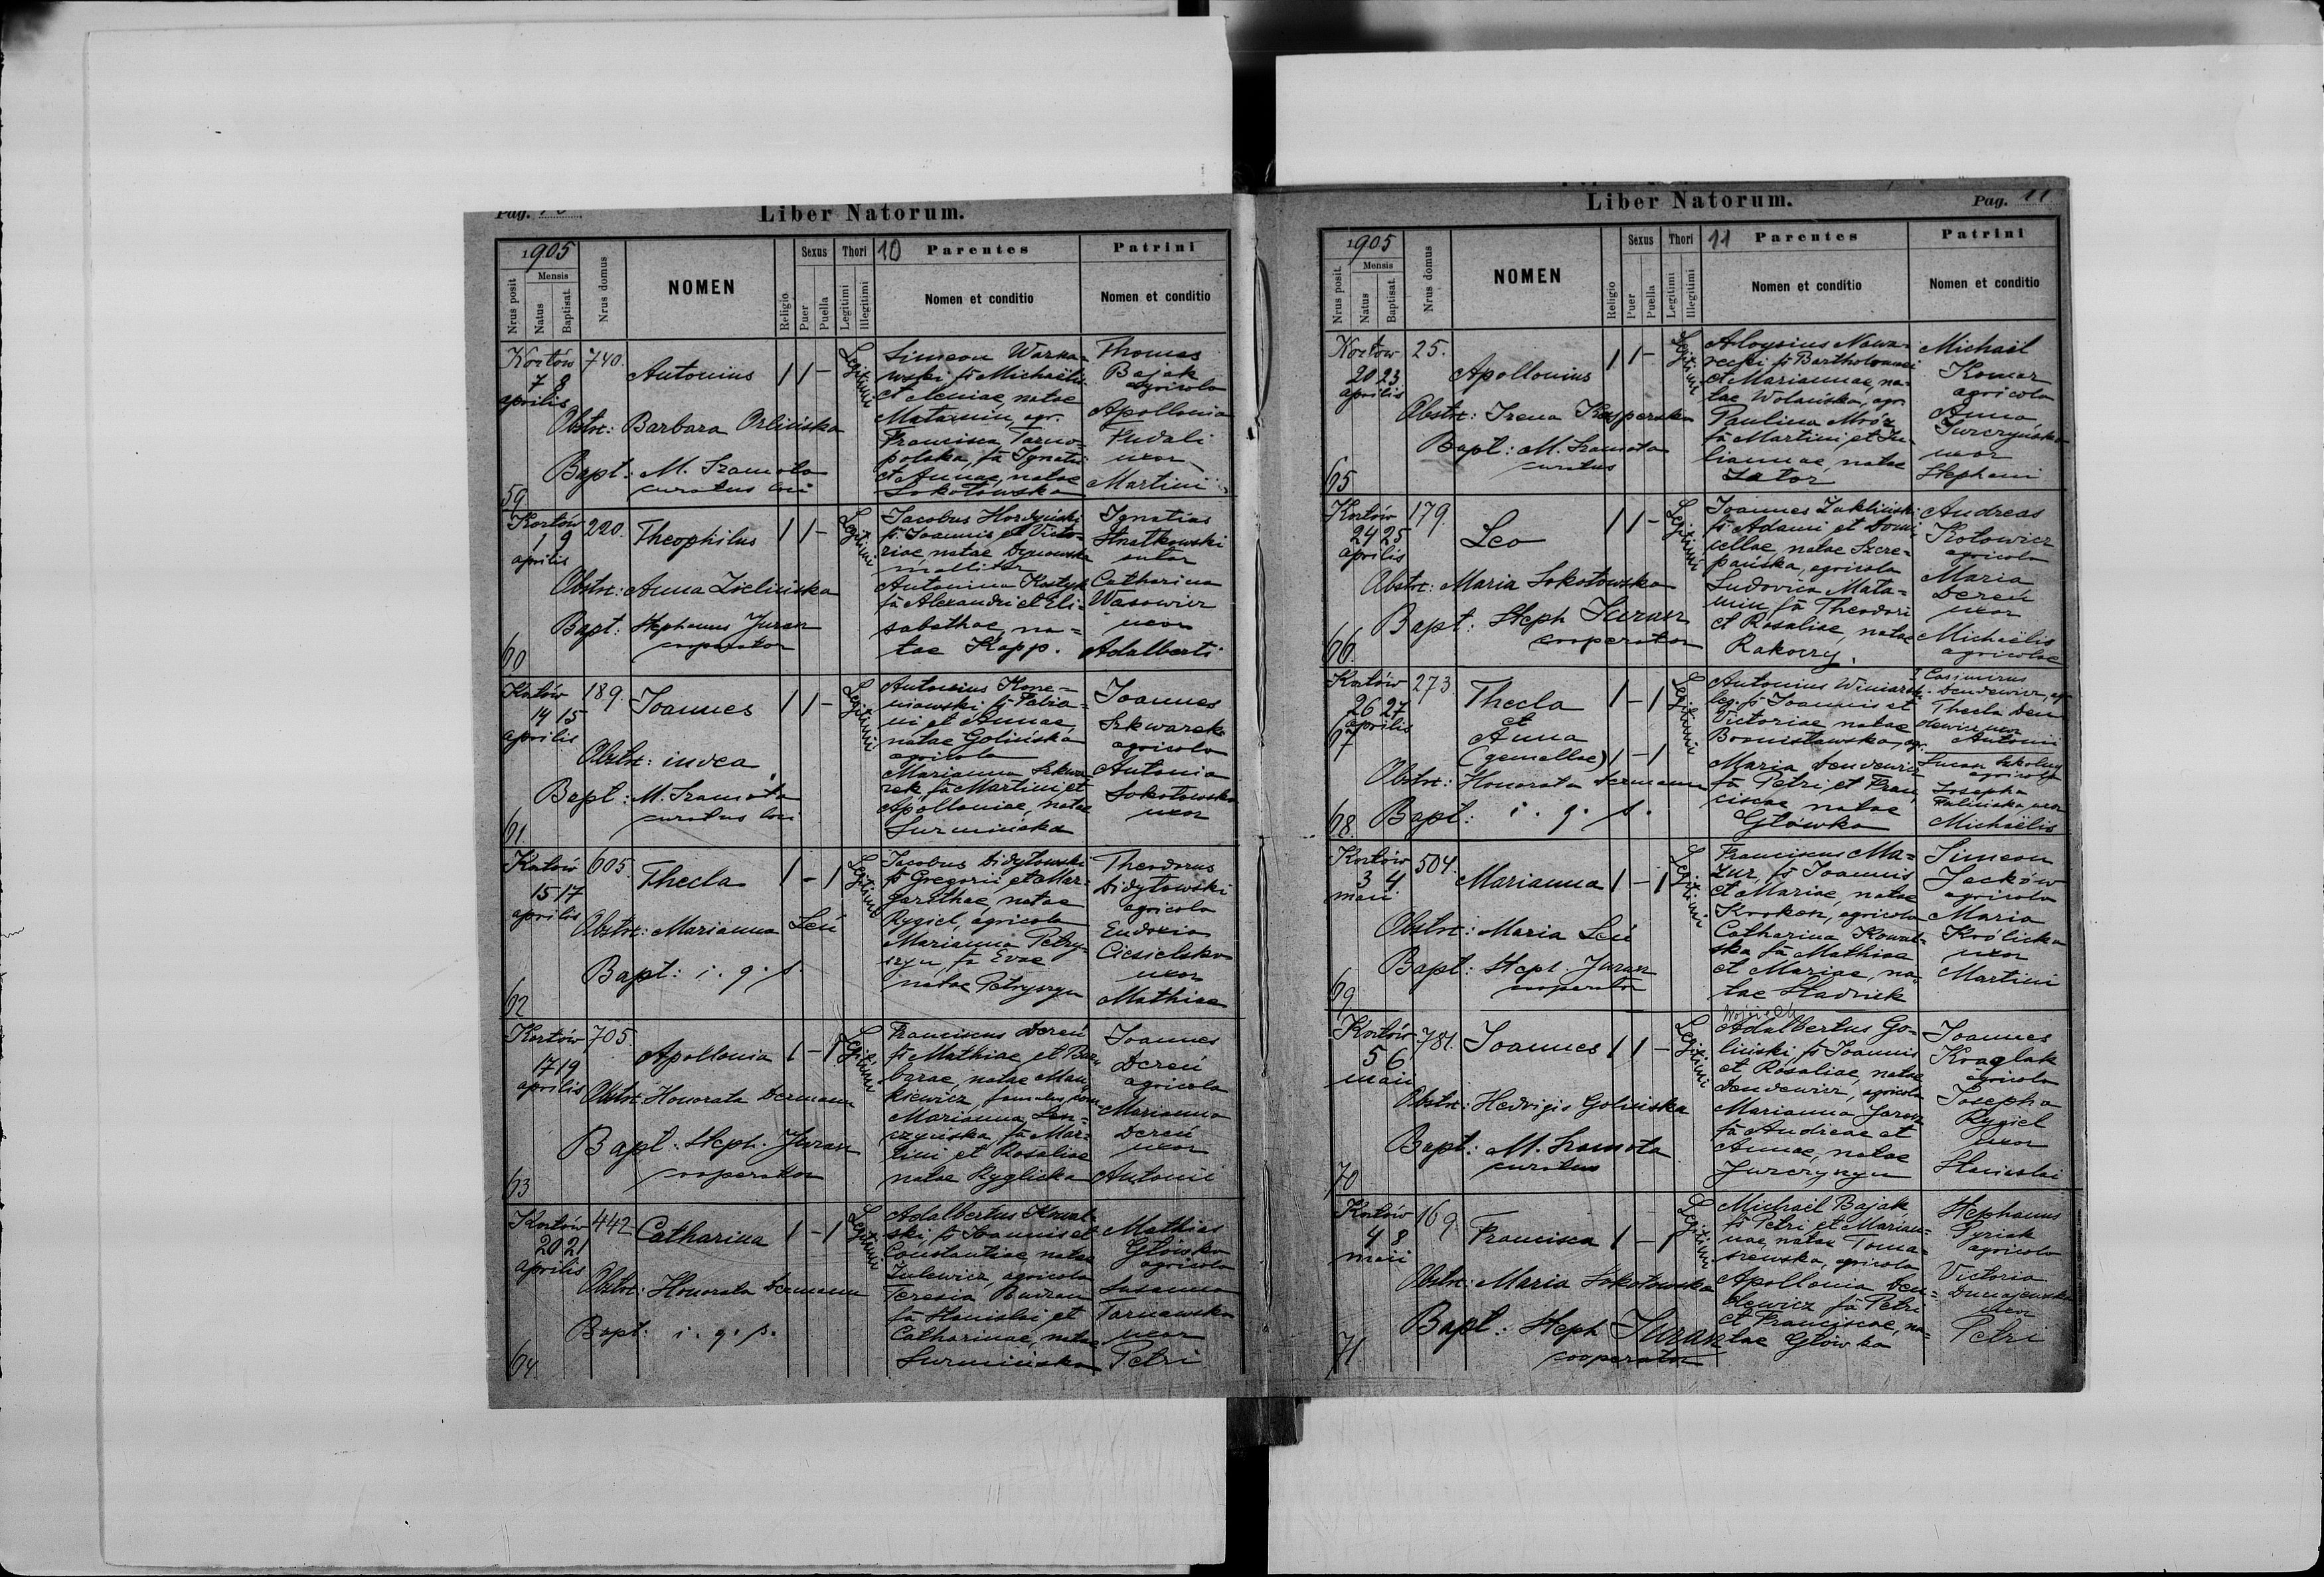 Pag. 10
Liber Natorum.
1905
Nrus posit
Mensis
Natus
Baptisat.
Nrus domus
NOMEN
Religio
Sexus
Puer
Puella
Thori
Legitimi
Illegitimi
10 Parentes
Nomen et conditio
Patrini
Nomen et conditio
Kozłów
7 8
aprilis
59
740.
Antonius
1 1 -
Legitimi
Obstr: Barbara Orlińska
Bapt: M. Sramota
curatus loci
Simeon Warna-
wski fs Michaëlis
et natae
Matamin, agr.
Francisca Tarno-
polska, fa Ignatii
et Annae, natae
Sokołowska
Thomas
Bajak
agricola
Apollonia
Pudali
uxor
Martini
Kozłów
1 9
aprilis
60
220.
Theophilus
1 1 -
Legitimi
Obstr: Anna Zielińska
Bapt: Stephanus Juraz
cooperator
Jacobus Hordyński
fs Joannis et Victo-
riae, natae Dymowska
mollitor
Antonina Kostyk
fa Alexandri et Eli-
sabethae, na-
tae Kapp.
Ignatius
Stratkowski
sutor
Catharina
Wąsowicz
uxor
Adalberti
Kozłów
14 15
aprilis
61.
189.
Joannes
1 1 -
Legitimi
Obstr: invea
Bapt: M. Sramota
curatus loci
Antonius Kone-
niowski fs Fabia-
ni et Annae,
natae Golińska
agricola
Marianna Szkwa-
rek fa Martini et
Apolloniae, natae
Surmińska
Joannes
Szkwarek
agricola
Antonia
Sokołowska
uxor
Kozłów
15 17
aprilis
62
605.
Thecla
1 - 1
Legitimi
Obstr: Marianna Leń
Bapt: i. q. s.
Jacobus Didyłowski
fs Gregorii et Mar-
garethae, natae
Rygiel, agricola
Marianna Petry-
szyn fa Evae
natae Petryszyn
Theodorus
Didyłowski
agricola
Eudoxia
Ciesielska
uxor
Mathiae
Kozłów
17 19
aprilis
63
705.
Apollonia
1 - 1
Legitimi
Obstr: Honorata Dermann
Bapt: Steph. Juraz
cooperator
Franciscus Dereń
fs Mathiae et Bar-
barae, natae Man-
kiewicz, famulus
Marianna Len-
czyńska, fa Mar-
tini et Rosaliae
natae Ryglicka
Joannes
Dereń
agricola
Marianna
Dereń
uxor
Antonii
Kozłów
20 21
aprilis
64
442
Catharina
1 - 1
Legitimi
Obstr: Honorata Dermann
Bapt: i. q. s.
Adalbertus Kowal-
ski, fs Joannis et
Constantiae, natae
Zulewicz, agricola
Teresia
fa Stanislai et
Catharinae, natae
Surmińska
Mathias
Główka
agricola
Susanna
Tarnawska
uxor
Petri
Liber Natorum.
Pag. 11
1905
Nrus posit.
Mensis
Natus
Baptisat.
Nrus domus
NOMEN
Religio
Sexus
Puer
Puella
Thori
Legitimi
Illegitimi
11 Parentes
Nomen et conditio
Patrini
Nomen et conditio
Kozłów
20 23
aprilis
65
25.
Apollonius
1 1 -
Legitimi
Obstr: Irena Kasperska
Bapt: M. Sramota
curatus
Aloysius Nawa-
recki fs Bartholomaei
et Mariannae, na-
tae Wolańska, agr.
Paulina Mróz
fa Martini et Ju-
liannae, natae
Zator
Michael
Komar
agricola
Anna
Jurczyńska
uxor
Stephani
Kozłów
24 25
aprilis
66.
179.
Leo
1 1 -
Legitimi
Obstr: Maria Sokołowska
Bapt: Steph Juraz
cooperator
Joannes Zakliński
fs Adami et Domi-
cellae, natae Szcze-
pańska, agricola
Ludovica Mata-
min, fa Theodori
et Rosaliae, natae
Rakoczy.
Andreas
Kotowicz
agricola
Maria
Dereń
uxor
Michaëlis
agricolae
Kozłów
26 27
aprilis
67
68.
273.
Thecla
et
Anna
(gemellae)
1 - 1
1 - 1
Legitimi
Obstr: Honorata Dermann
Bapt: i. q. s.
Antonius Winiarsk.
leg. fs Joannis et
Victoriae natae
Bronisławska, agr.
Maria Dendewicz
fa Petri et Fran-
ciscae natae
Główka
Casimirus
Dendewicz, agr
Thecla Den-
dewicz uxor
Antonii
Lucas Szkolny
agricola
Josepha
Palińska uxor
Michaëlis
Kozłów
3 4
maii
69
504.
Marianna
1 - 1
Legitimi
Obstr: Maria Leń
Bapt: Steph. Juraz
cooperator
Franciscus Ma-
zur, fs Joannis
et Mariae, natae
Krokon, agricola
Catharina Kowal-
ska fa Mathiae
et Mariae, na-
tae Stadnik
Simeon
Jacków
agricola
Maria
Królicka
uxor
Martini
Kozłów
5 6
maii
70
781.
Joannes
1 1 -
Legitimi
Obstr: Hedvigis Golińska
Bapt: M. Sramota
curatus
Wojciech
Adalbertus Go-
liński, fs Joannis
et Rosaliae, natae
Dendewicz, agricola
Marianna Jarosz
fa Andreae et
Annae, natae
Jurczyszyn
Joannes
Kraglak
agricola
Josepha
Rygiel
uxor
Stanislai
Kozłów
4 8
maii
71
169.
Francisca
1 - 1
Legitimi
Obstr: Maria Sokołowska
Bapt: Steph Juraz
cooperator
Michaël Bajak
fs Petri et Marian-
nae, natae Toma-
szewska, agricola
Apollonia Den-
dewicz fa Petri
et Franciscae, na-
tae Główka
Stephanus
Pyriak
agricola
Victoria
Dunajewska
uxor
Petri